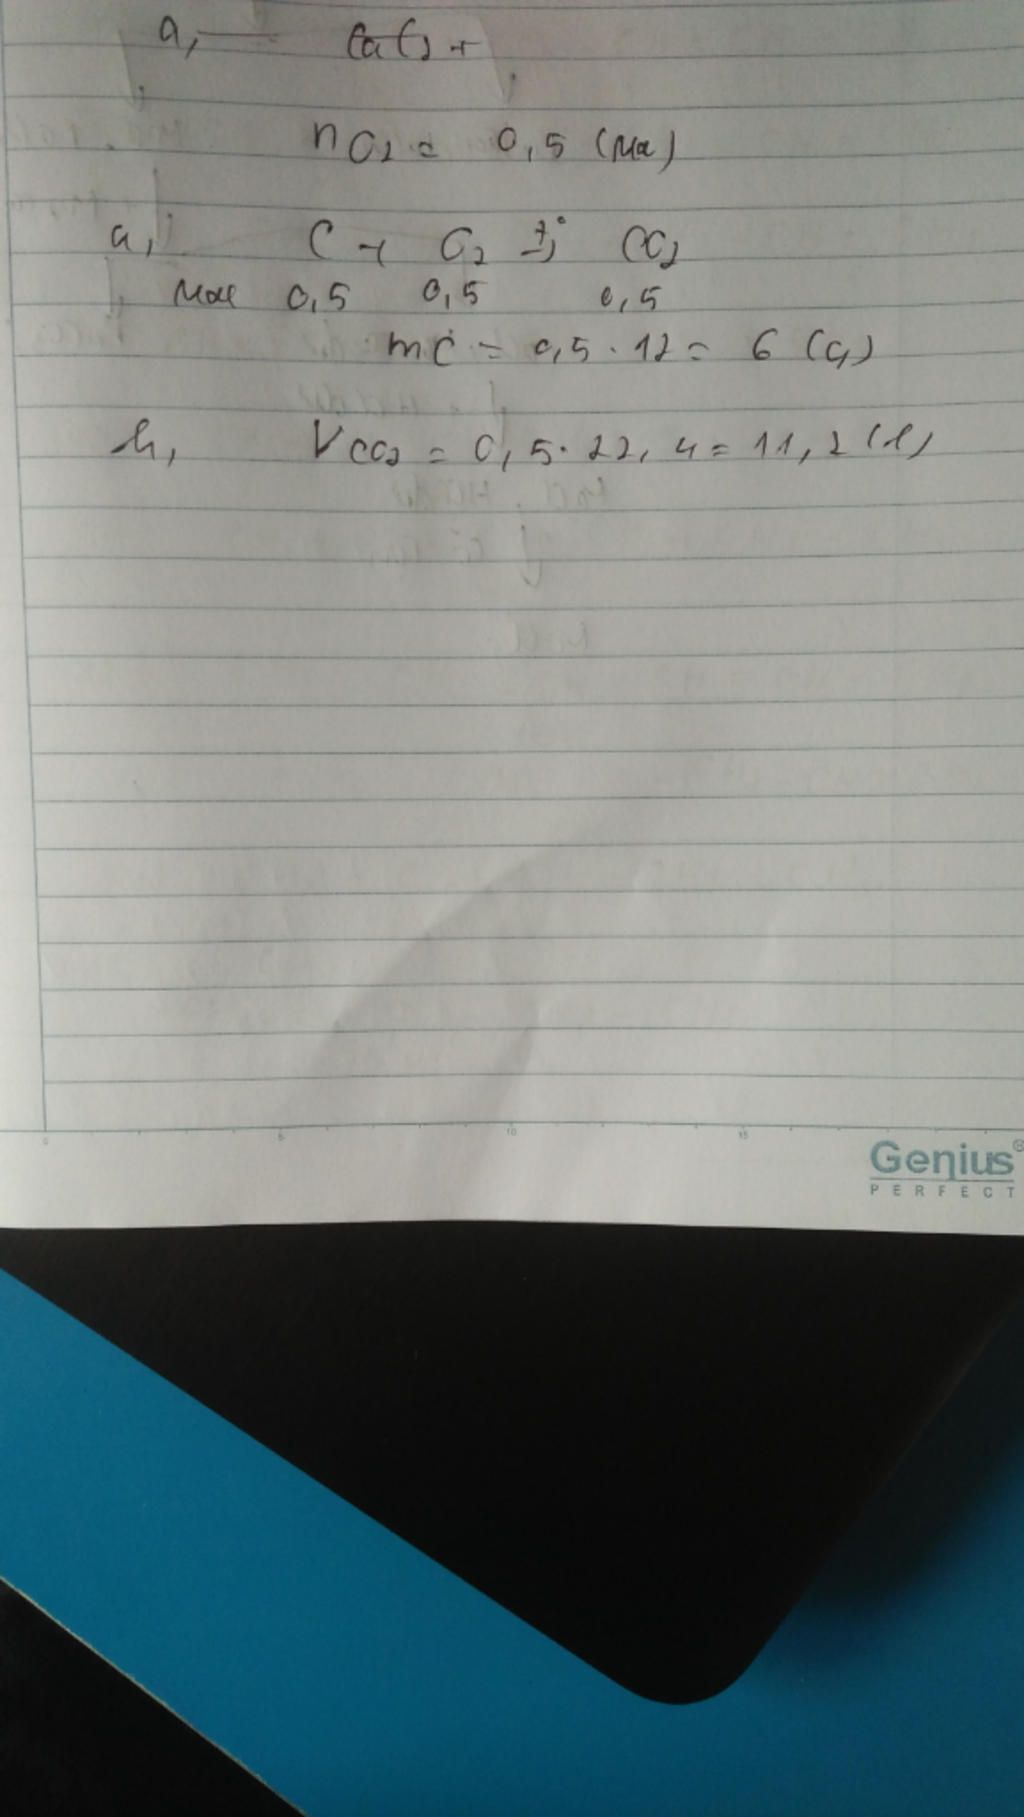 a,
nO2 = 0,5 (Mol)
a, C + O2 t°→ CO2
Mol 0,5 0,5 0,5
mC = 0,5 . 12 = 6 (g)
b, VCO2 = 0,5 . 22,4 = 11,2 (l)
0 5 10 15
Genius®
PERFECT